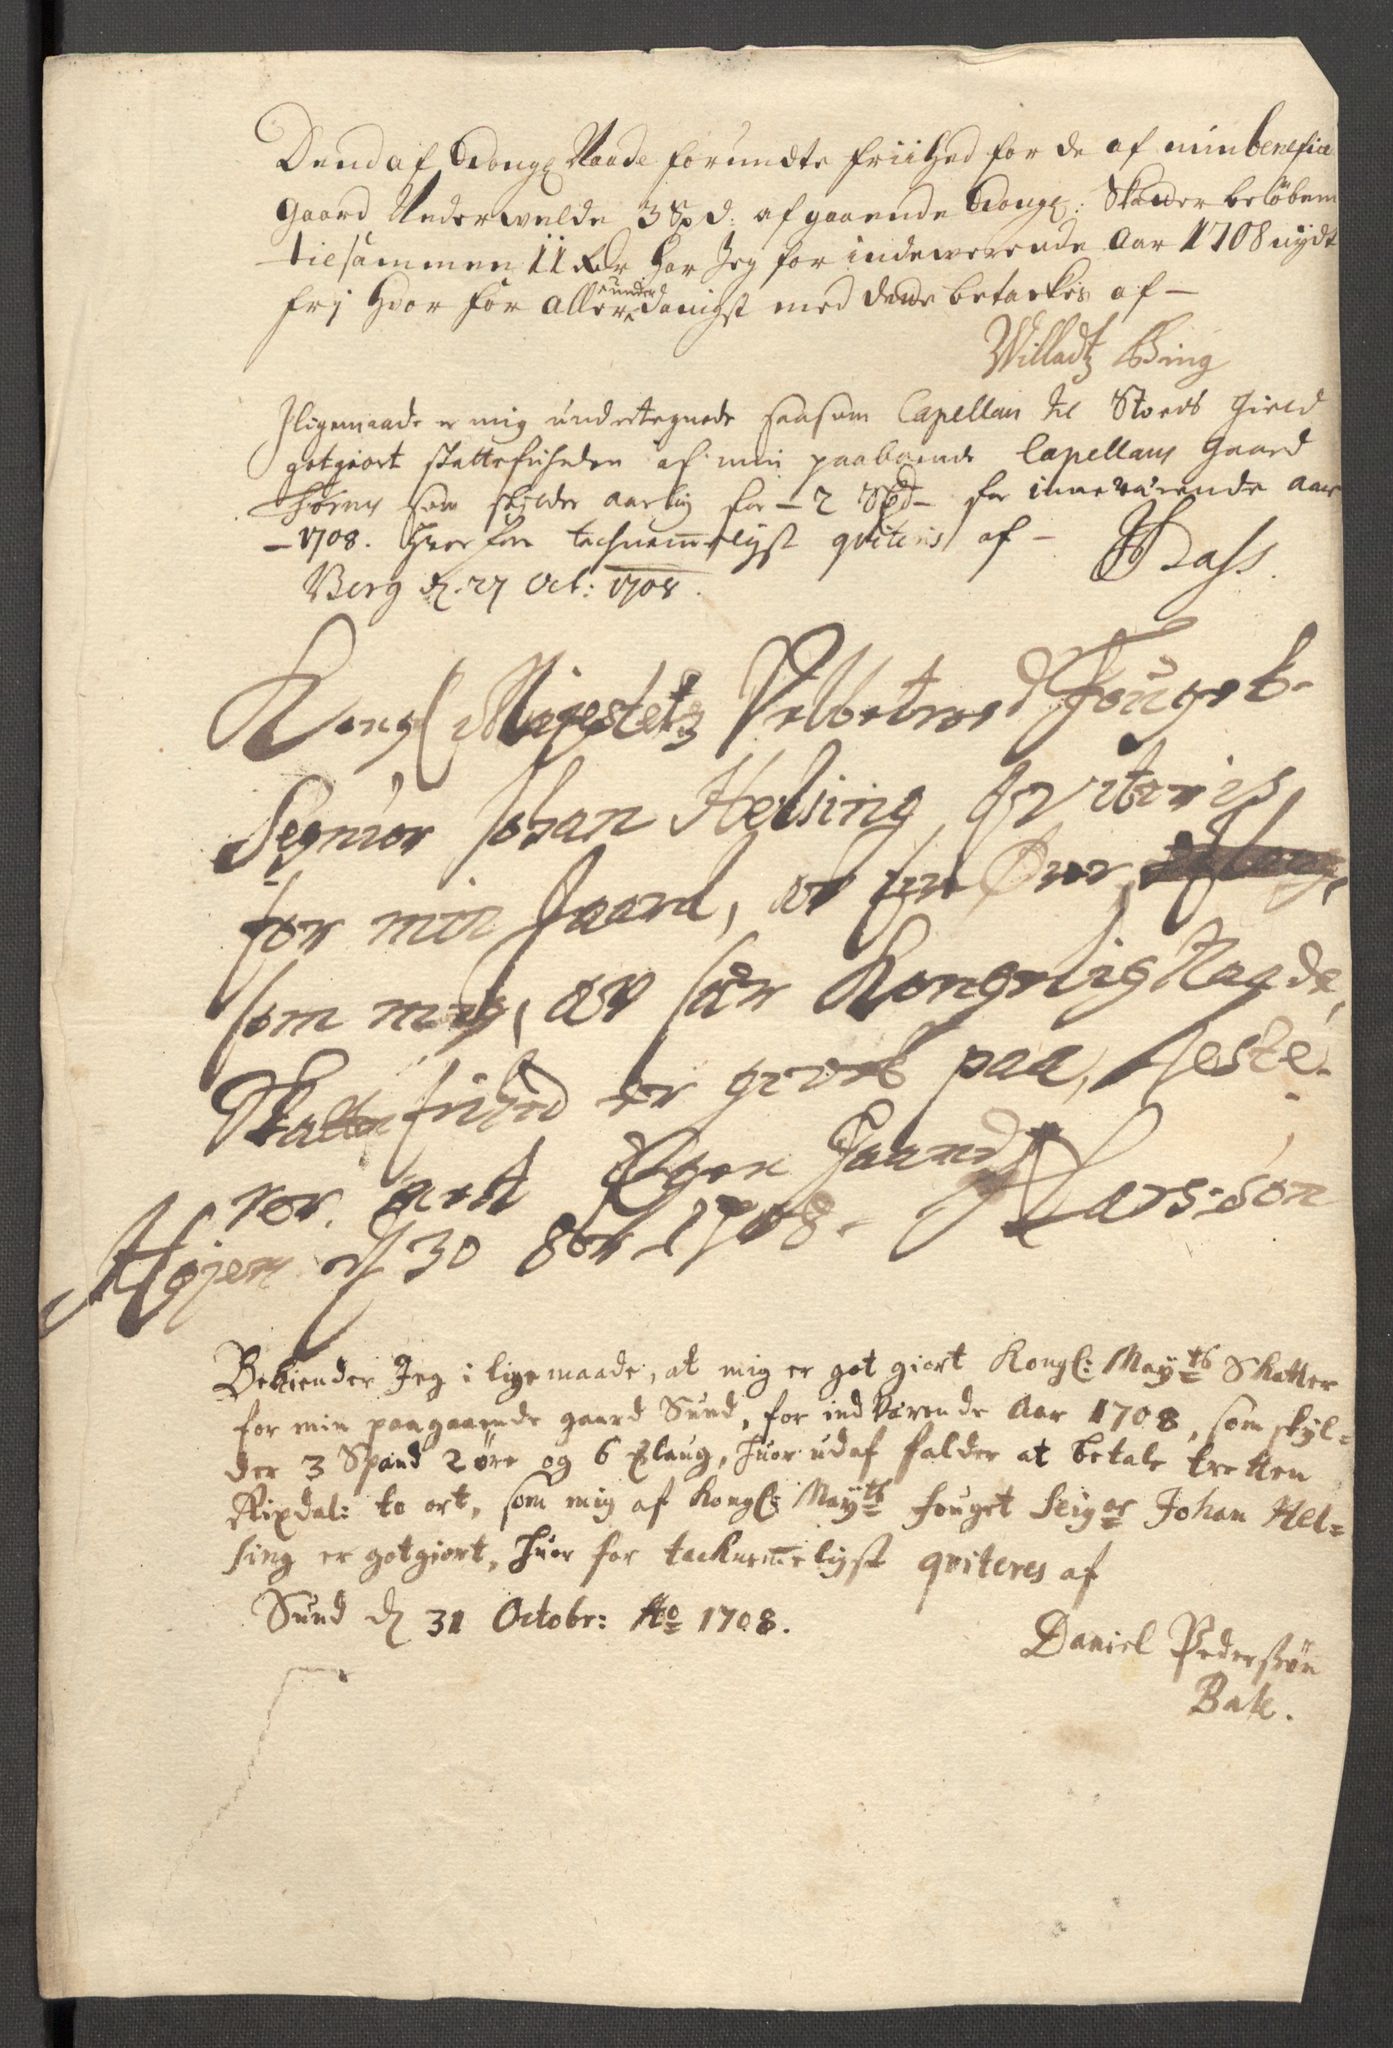 Dend af Kongl Naade forundte friihed for de af min benefice
gaard Underwelde 3 Spd: afgaaende Kongl: Skatter beløbem
tilsammen 11 Rdr har Jeg for indeværende Aar 1708 nydt
frj hvor for aller under danigst med dette betackes af –
Willadtz Bing
Iligemaade er mig undertegnede saasom Capellan til Stods Gield
gotgiort skattefriheden af min paaboende Capellans Gaard
som skylder aarlig for – 2 Spd – for inneværende aar
– 1708. Hvorfor tachnemmeligst qviteris af –
Bass.
Berg d. 27 Oct: 1708.
Kongl Majestetz Velbetroed Fouget
Segnior Johan Helsing qviteris
for min Gaard, Øver
som mig, av Kongelig Naade,
Skatte frihed er givet paa, teste-
rer med Egen Haand
Højem d 30 8br 1708. Larssøn
Bekiender Jeg i ligemaade, at mig er got giort Kongl: Mayts Skatter
for min paagaaende gaard Sund, for indværende Aar 1708, som skyl=
der 3 Spand 2 øre og 6 Mlaug, huor udaf falder at betale tretten
Rixdal: to ort, som mig af Kongl: Mayts fouget Seigor Johan Hel=
sing er gotgiort, huor for tacknemmeligst qviteres af
Sund d 31 Octobr: Ao 1708.
Daniel Pederssøn
Bak.